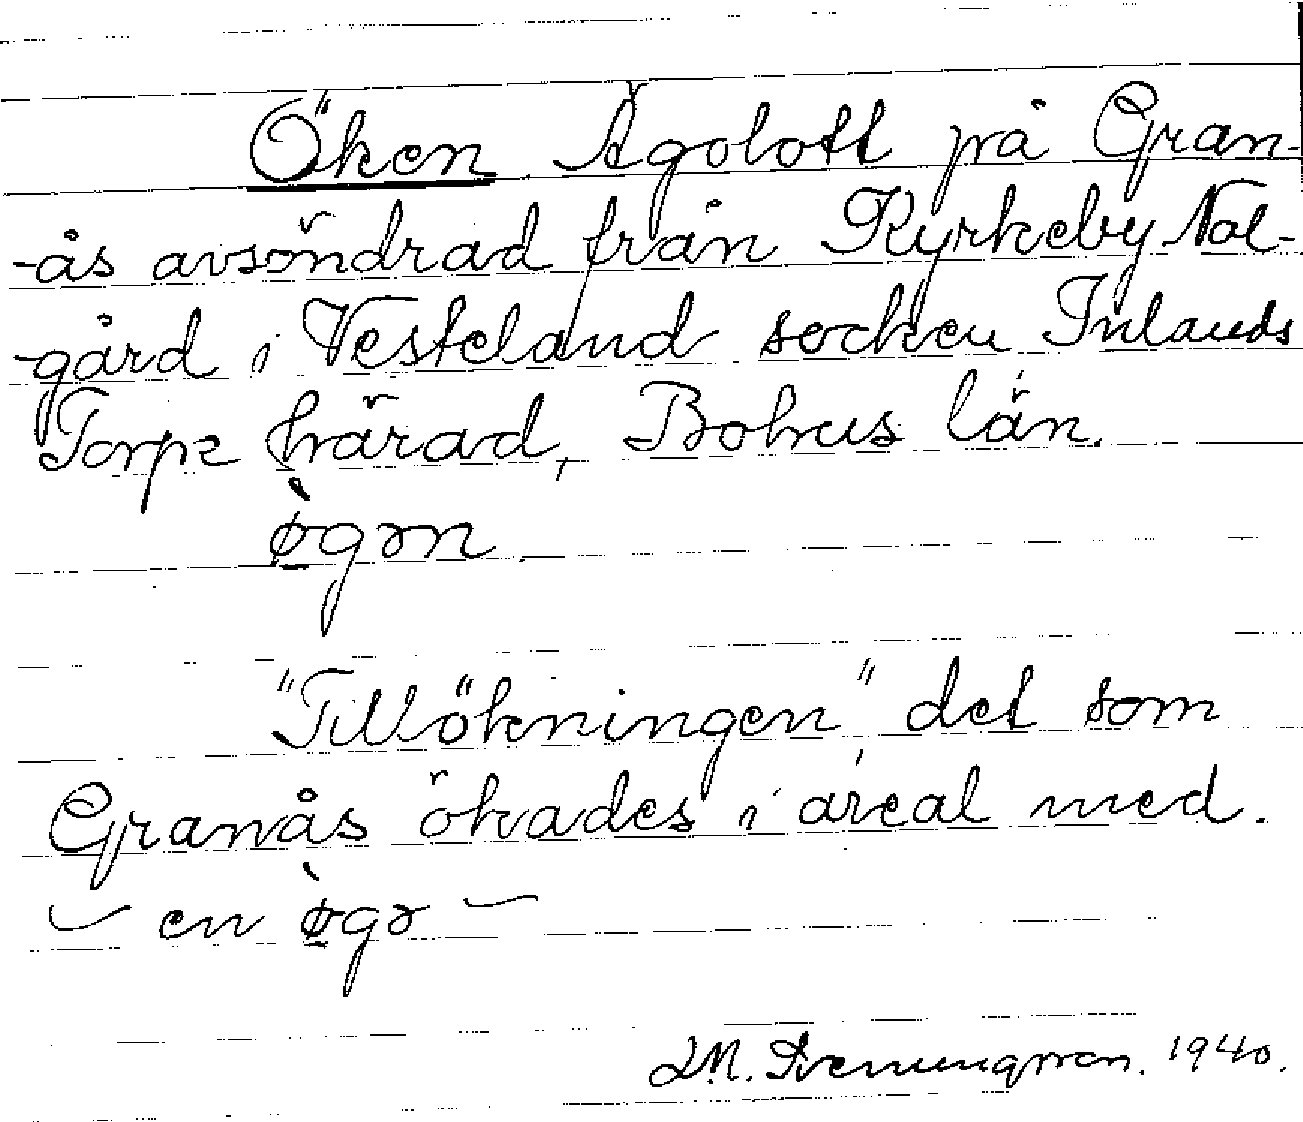 Öken Ägolott på Gran-
-ås avsöndrad från Kyrkeby Nol-
-gård i Vesteland socken Inlands
Torpe härad, Bohus län.
ø̀gǝn
"Tillökningen" det som
Granås ökades i areal med.
— en ø̀gǝ —
L.M. Svenungsson. 1940.